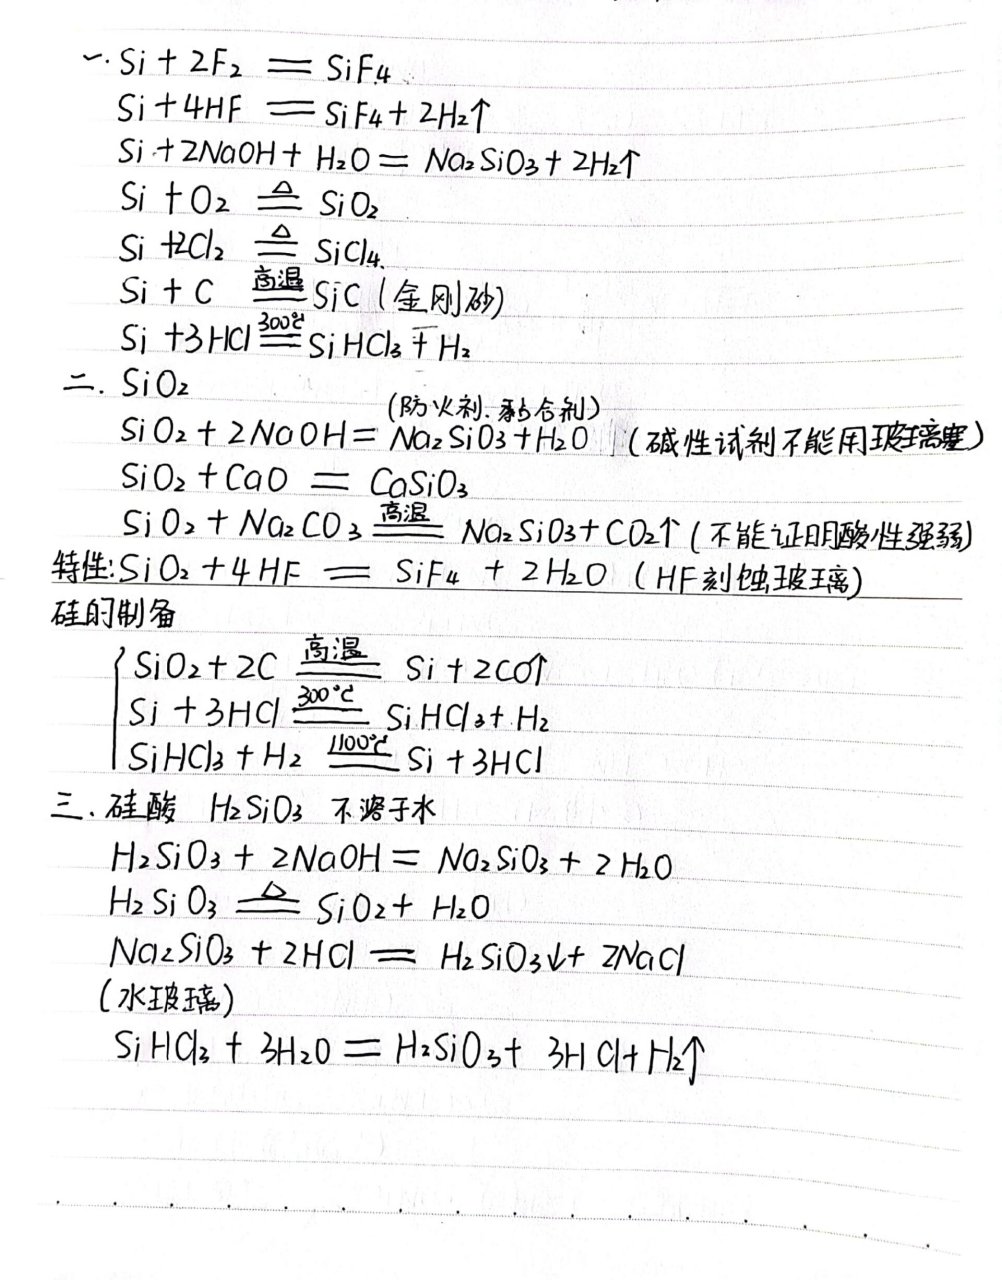 一. Si + 2F₂ == SiF₄
Si + 4HF == SiF₄ + 2H₂↑
Si + 2NaOH + H₂O = Na₂SiO₃ + 2H₂↑
Si + O₂ =△= SiO₂
Si + 2Cl₂ =△= SiCl₄
Si + C =高温= SiC (金刚砂)
Si + 3HCl =300℃= SiHCl₃ + H₂
二. SiO₂
(防火剂.黏合剂)
SiO₂ + 2NaOH = Na₂SiO₃ + H₂O (碱性试剂不能用玻璃塞)
SiO₂ + CaO == CaSiO₃
SiO₂ + Na₂CO₃ =高温= Na₂SiO₃ + CO₂↑ (不能证明酸性强弱)
特性: SiO₂ + 4HF == SiF₄ + 2H₂O (HF刻蚀玻璃)
硅的制备
SiO₂ + 2C =高温= Si + 2CO↑
Si + 3HCl =300℃= SiHCl₃ + H₂
SiHCl₃ + H₂ =1100℃= Si + 3HCl
三. 硅酸 H₂SiO₃ 不溶于水
H₂SiO₃ + 2NaOH = Na₂SiO₃ + 2H₂O
H₂SiO₃ =△= SiO₂ + H₂O
Na₂SiO₃ + 2HCl == H₂SiO₃↓ + 2NaCl
(水玻璃)
SiHCl₃ + 3H₂O = H₂SiO₃ + 3HCl + H₂↑